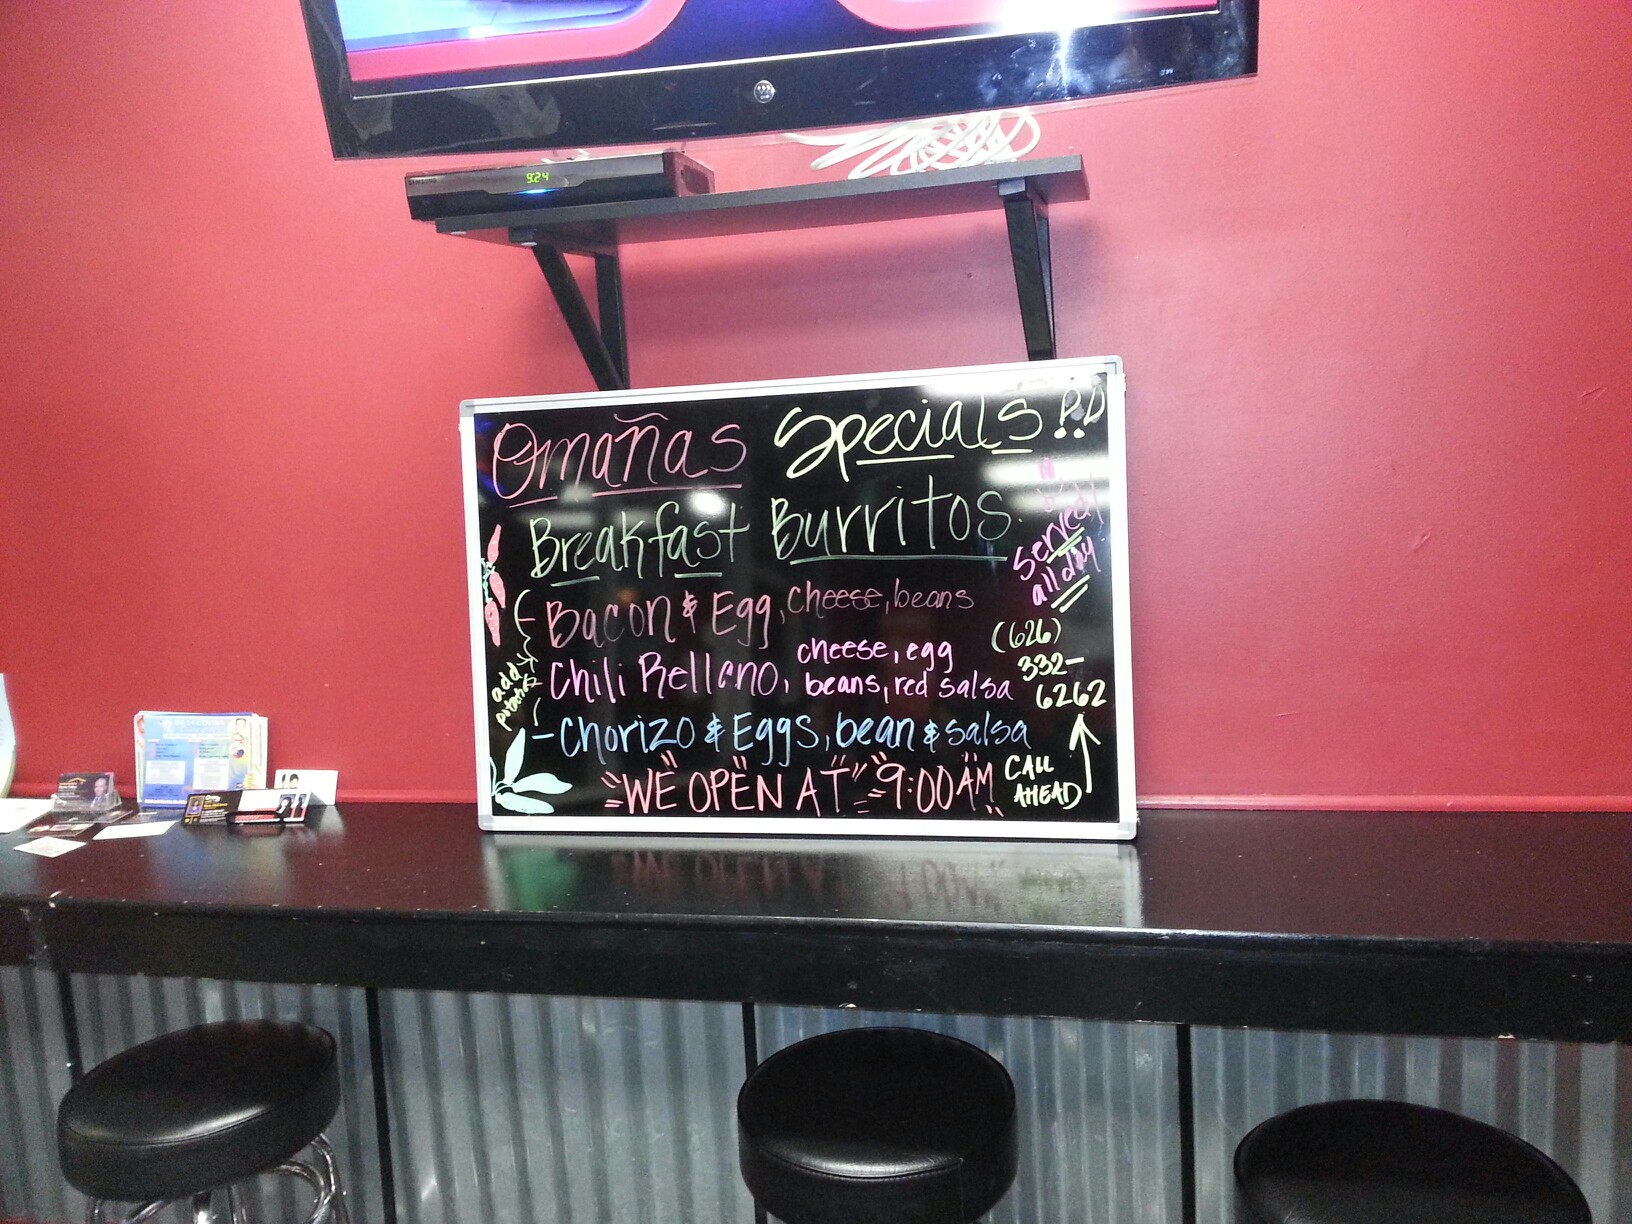 SAMSUNG
9:24
Omañas Specials!!
Breakfast Burritos
served
all day
Bacon & Egg, cheese, beans
Chili Rellano, cheese, egg
beans, red salsa
Chorizo & Eggs, bean & salsa
add
potatoes
(626)
332-
6262
"WE OPEN AT" 9:00AM
CALL
AHEAD